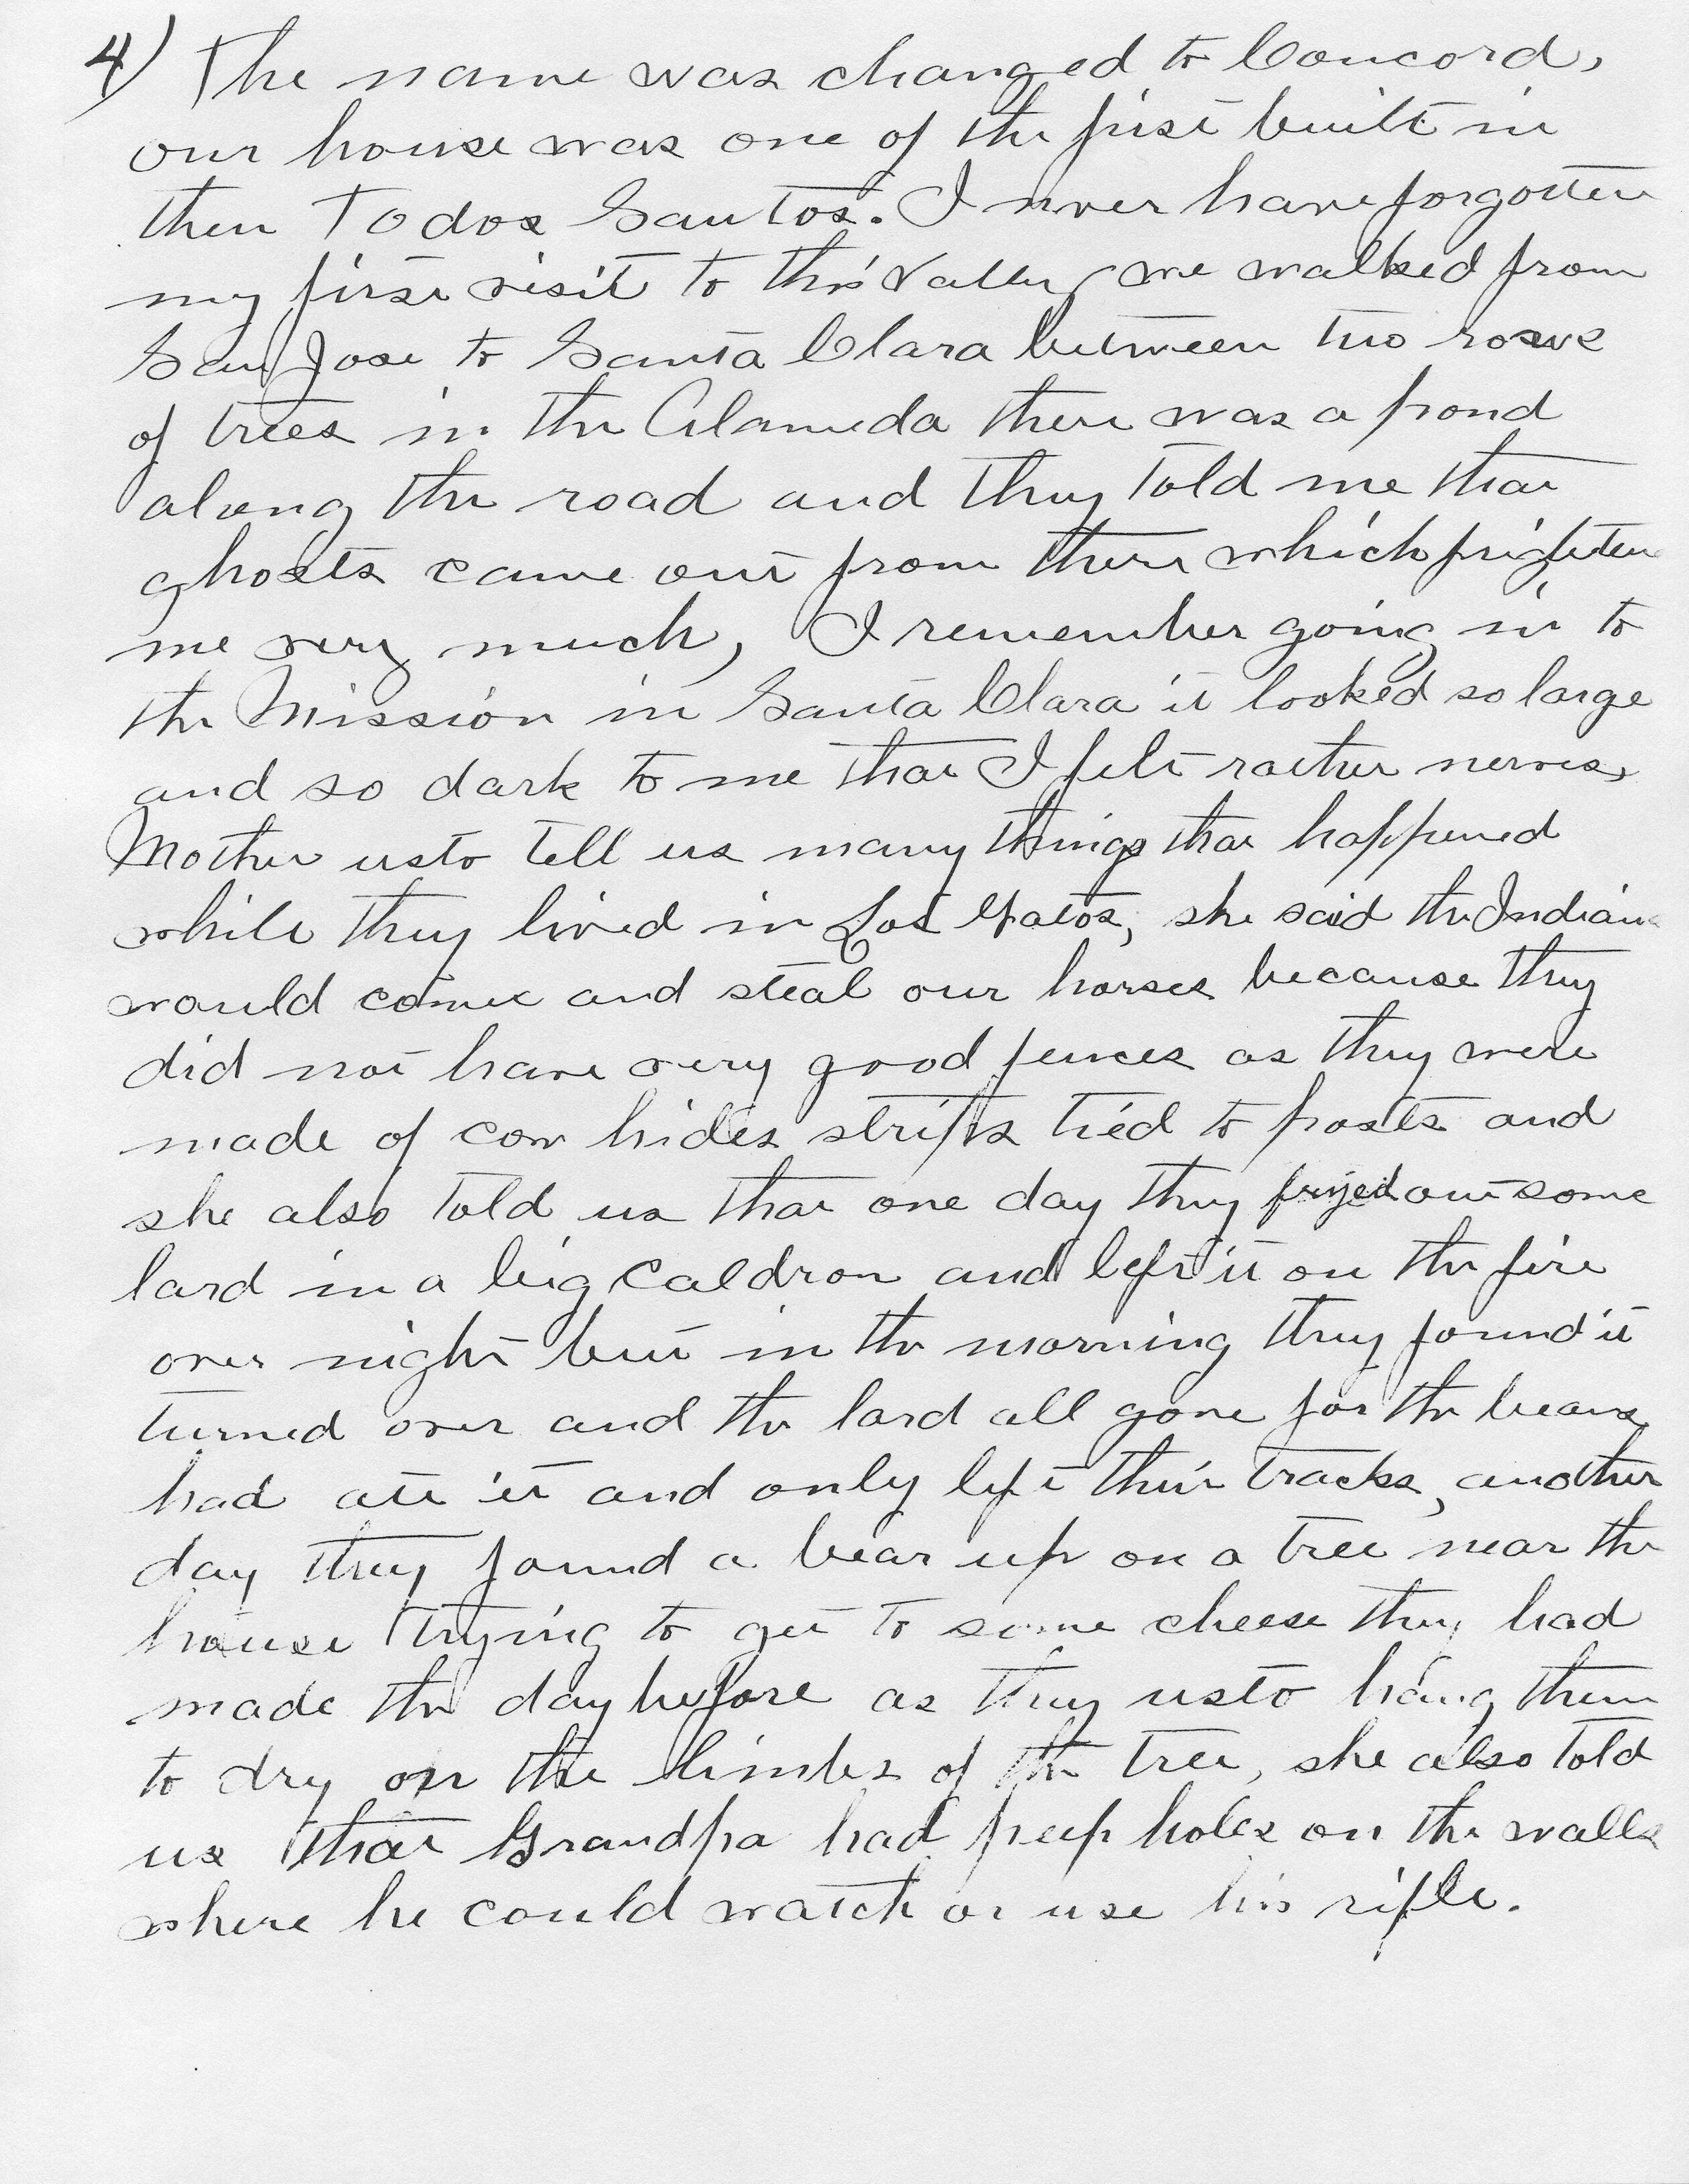 4) The name was changed to Concord,
our house was one of the first built in
then Todos Santos. I never have forgotten
my first visit to this Valley we walked from
San Jose to Santa Clara between two rows
of trees in the Alameda there was a pond
along the road and they told me that
ghosts came out from there which frighten
me very much, I remember going in to
the Mission in Santa Clara it looked so large
and so dark to me that I felt rather nerves,
Mother usto tell us many things that happened
while they lived in Los Gatos, she said the Indians
would come and steal our horses because they
did not have very good fences as they were
made of cow hides strips tied to posts and
she also told us that one day they out some
lard in a big Caldron and left it on the fire
over night but in the morning they found it
turned over and the lard all gone for the bears
had ate it and only left their tracks, another
day they found a bear up on a tree near the
house trying to get to some cheese they had
made the day before as they usto hang them
to dry on the limbs of the tree, she also told
us that Grandpa had peep holes on the walls
where he could watch or use his rifle.